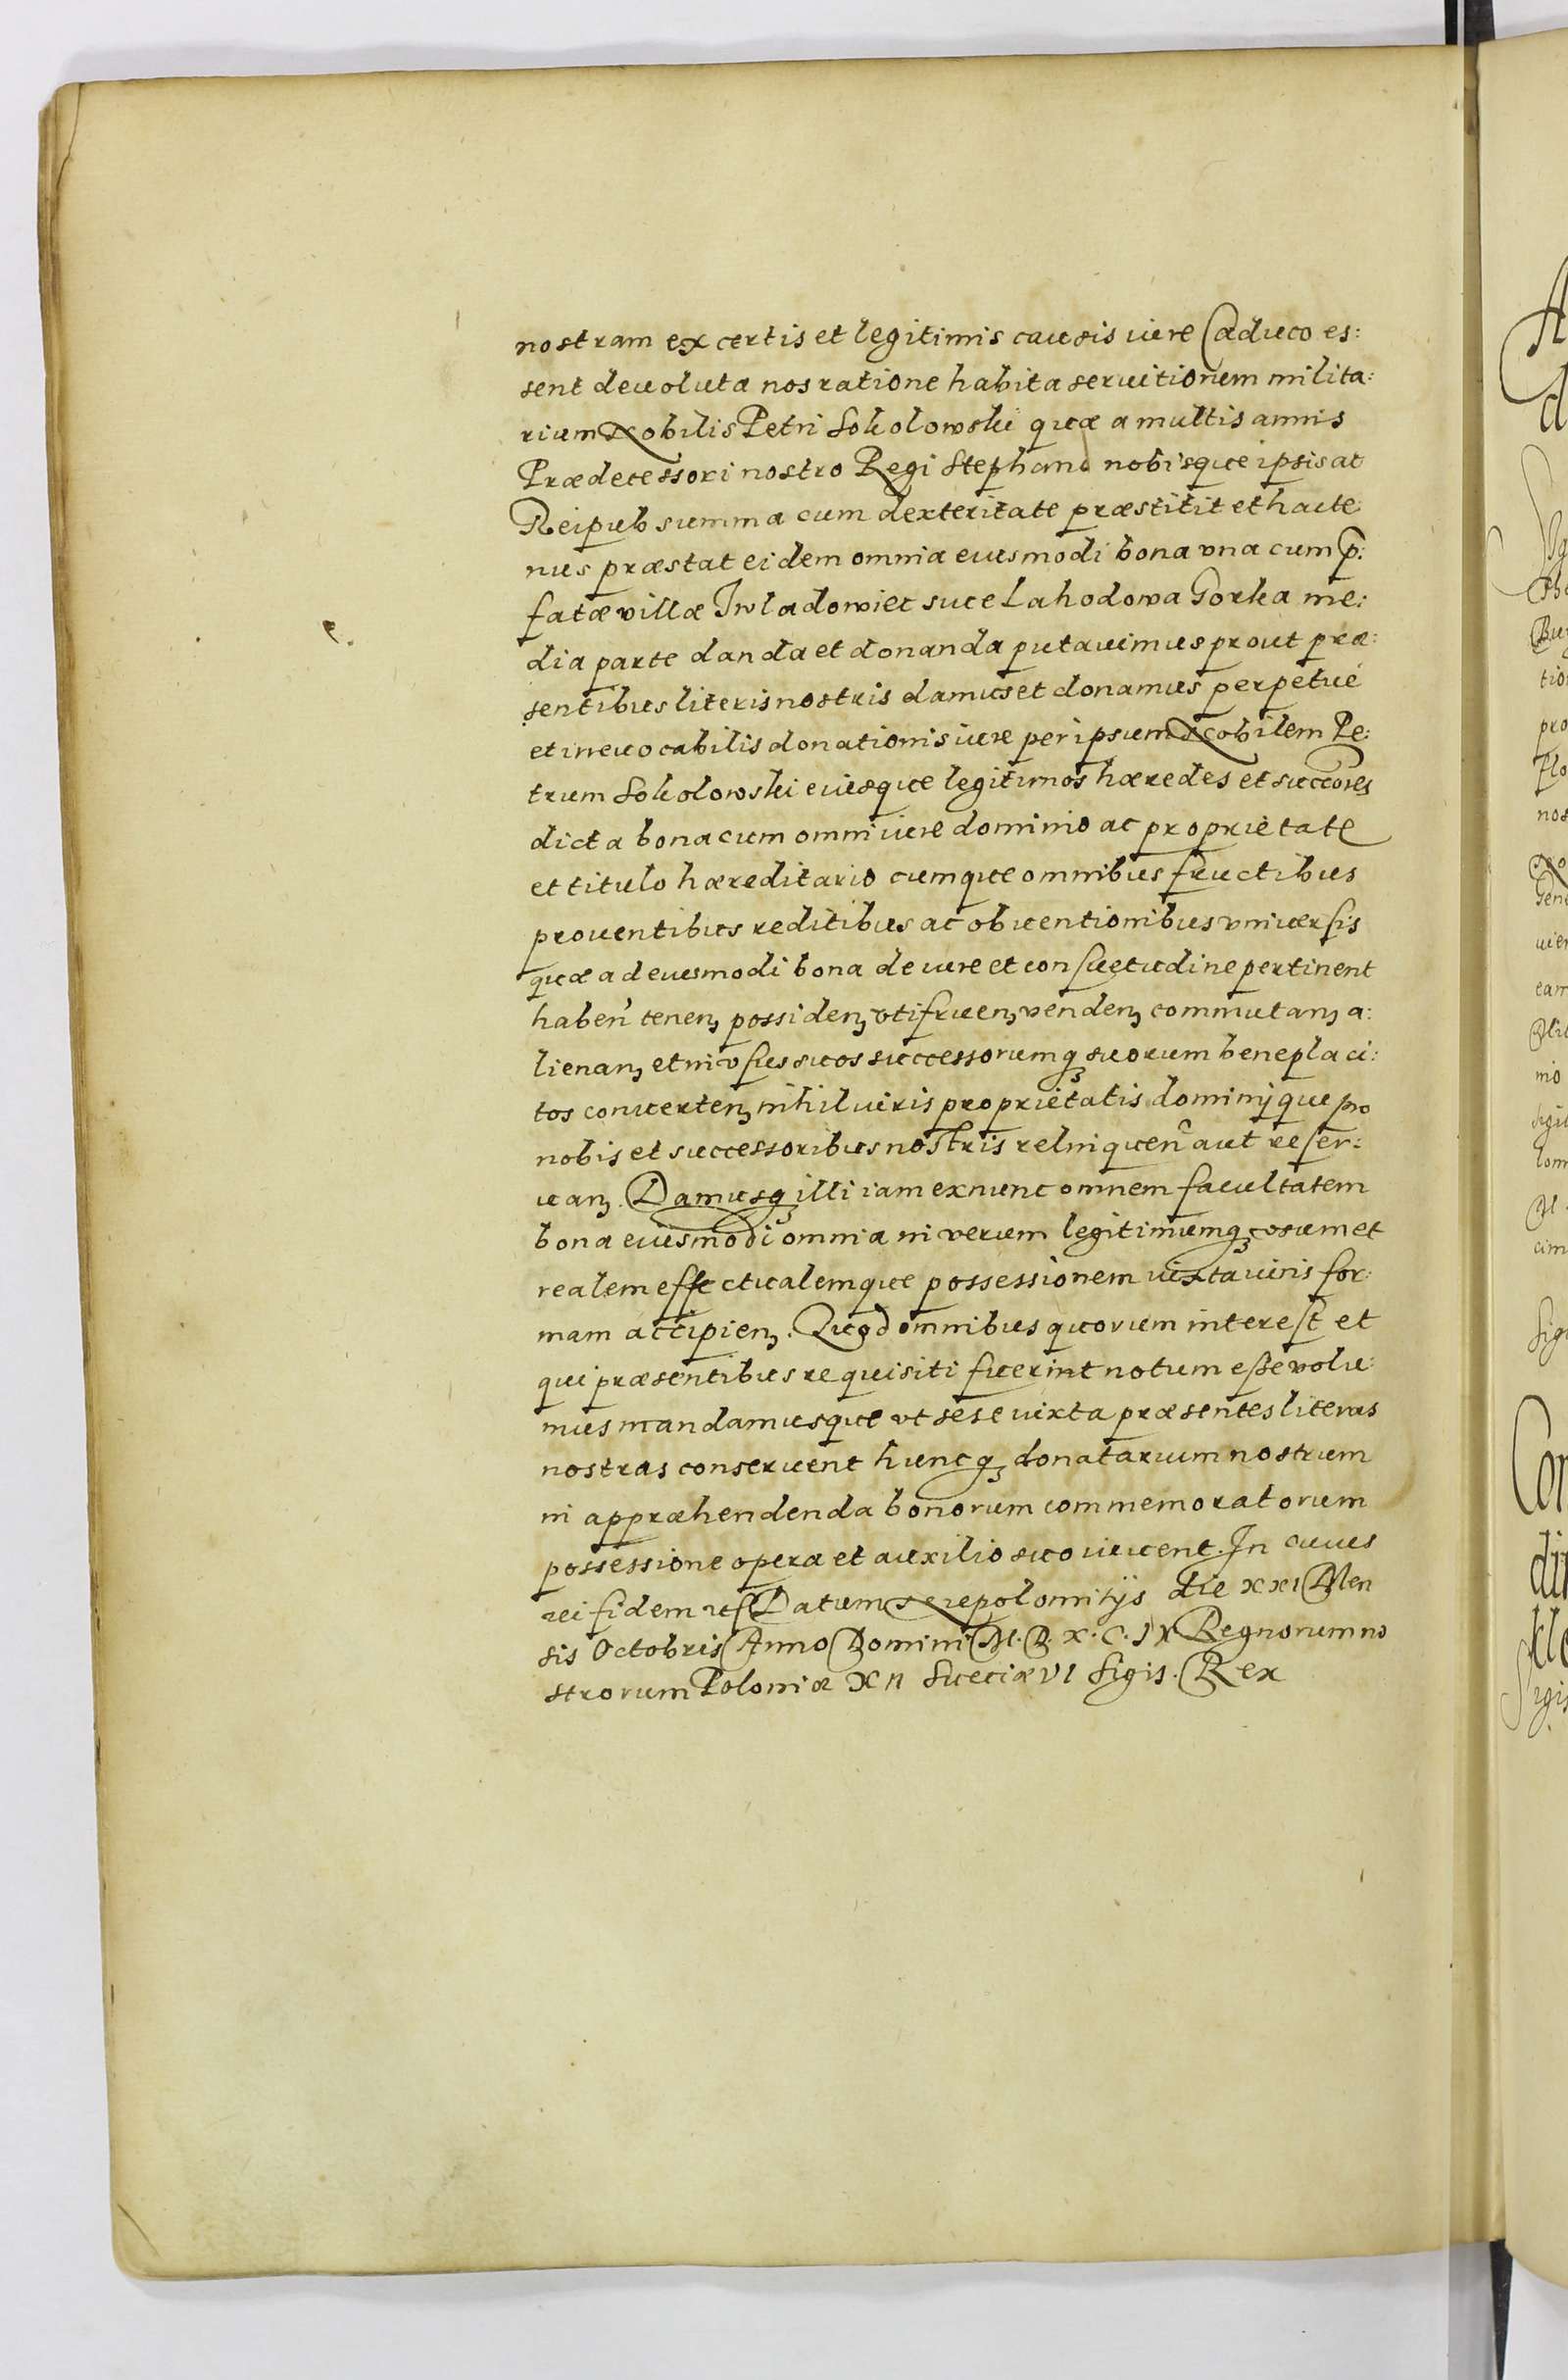 nostram ex certis et legitimis causis iure Caduco es:
sent deuoluta nos ratione habita seruitiorum milita:
rium Nobilis Petri Sokolowski quæ a multis annis
Prædecessori nostro Regi Stephano nobisque ipsis ac
Reipub summa cum dexteritate præstitit et hacte
nus præstat eidem omnia eiusmodi bona vna cum p̄:
fatæ villæ Iwladowiec siue Lahodowa Gorka me:
dia parte danda et donanda putauimus prout præ:
sentibus literis nostris damus et donamus perpetue
et irreuocabilis donationis iure per ipsum Nobilem Pe:
trum Sokolowski eiusque legitimos hæredes et succōres
dicta bona cum omni iure dominio ac proprietate
et titulo hæreditario cumque omnibus fructibus
prouentibus reditibus ac obuentionibus vniuersis
quæ ad eiusmodi bona de iure et consuetudine pertinent
haben̄ tenen₃ possiden₃ vtifruen₃ venden₃ commutan₃ a:
lienan₃ et in vsus suos successorumq₃ suorum beneplaci:
tos conuerten₃ nihil iuris proprietatis dominijque pro
nobis et successoribus nostris relinquen̄ aut reser:
uan₃. Damusq₃ illi iam ex nunc omnem facultatem
bona eiusmodi omnia in verum legitimumq₃ vsum et
realem effectualemque possessionem iuxta iuris for:
mam accipien₃. Quod omnibus quorum interest et
qui præsentibus requisiti fuerint notum esse volu:
mus mandamusque vt sese iuxta præsentes literas
nostras conseruent huncq₃ donatarium nostrum
in appræhendenda bonorum commemoratorum
possessione opera et auxilio suo iuuent. In cuius
rei fidem etc Datum Nepolomitijs die XXI Men
sis Octobris Anno Domini M. D. X. C. IX Regnorum no
strorum Poloniæ XII Sueciæ VI Sigis. Rex